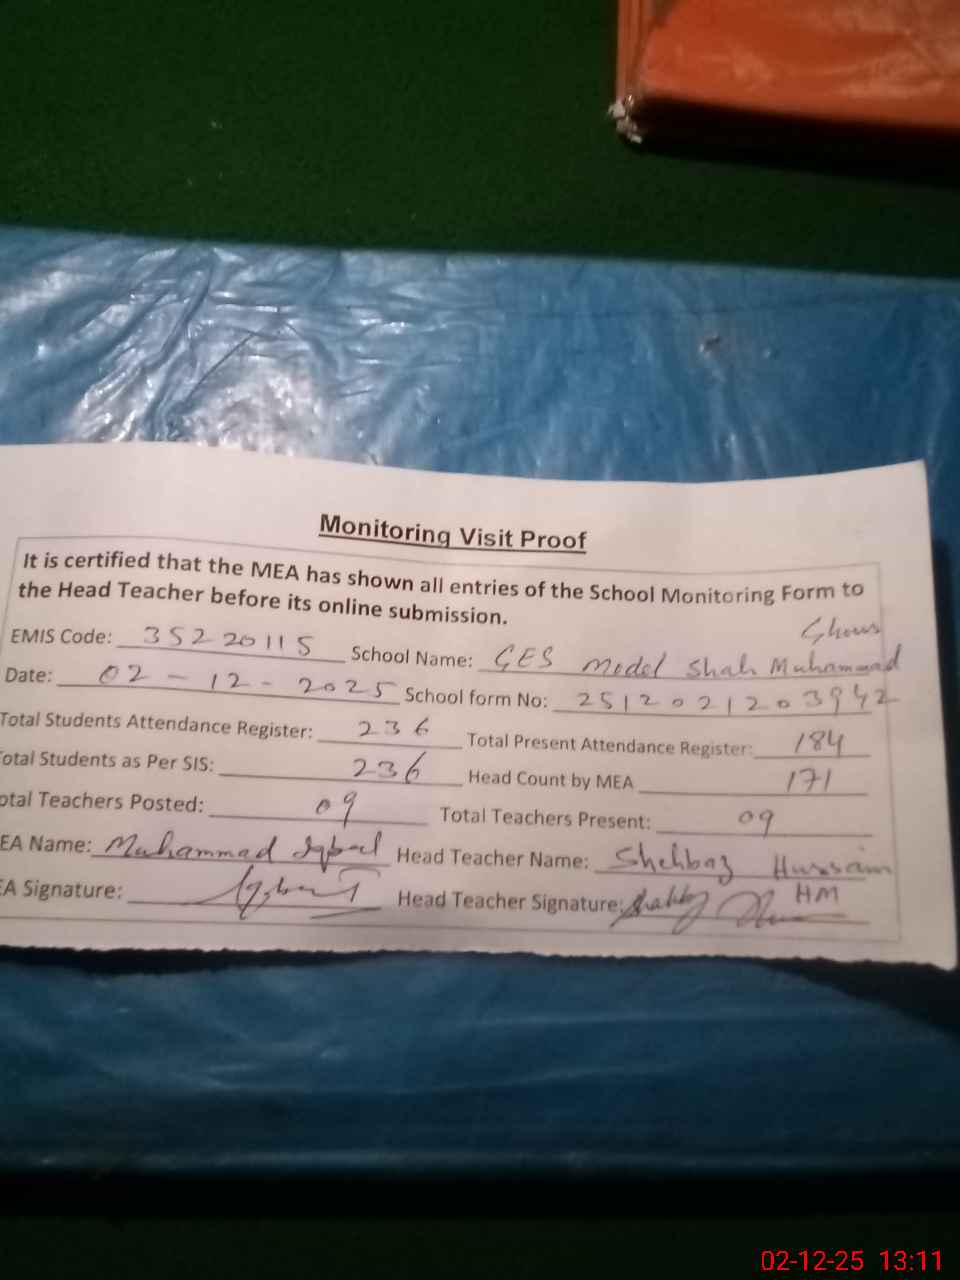 Monitoring Visit Proof
It is certified that the MEA has shown all entries of the School Monitoring Form to
the Head Teacher before its online submission.
Ghous
EMIS Code: 35220115 School Name: GES Model Shah Muhammad
Date: 02-12-2025 School form No: 2512021203942
Total Students Attendance Register: 236 Total Present Attendance Register: 184
otal Students as Per SIS: 236 Head Count by MEA 171
otal Teachers Posted: 09 Total Teachers Present: 09
EA Name: Muhammad Iqbal Head Teacher Name: Shehbaz Hussain
EA Signature: Head Teacher Signature: HM
02-12-25 13:11